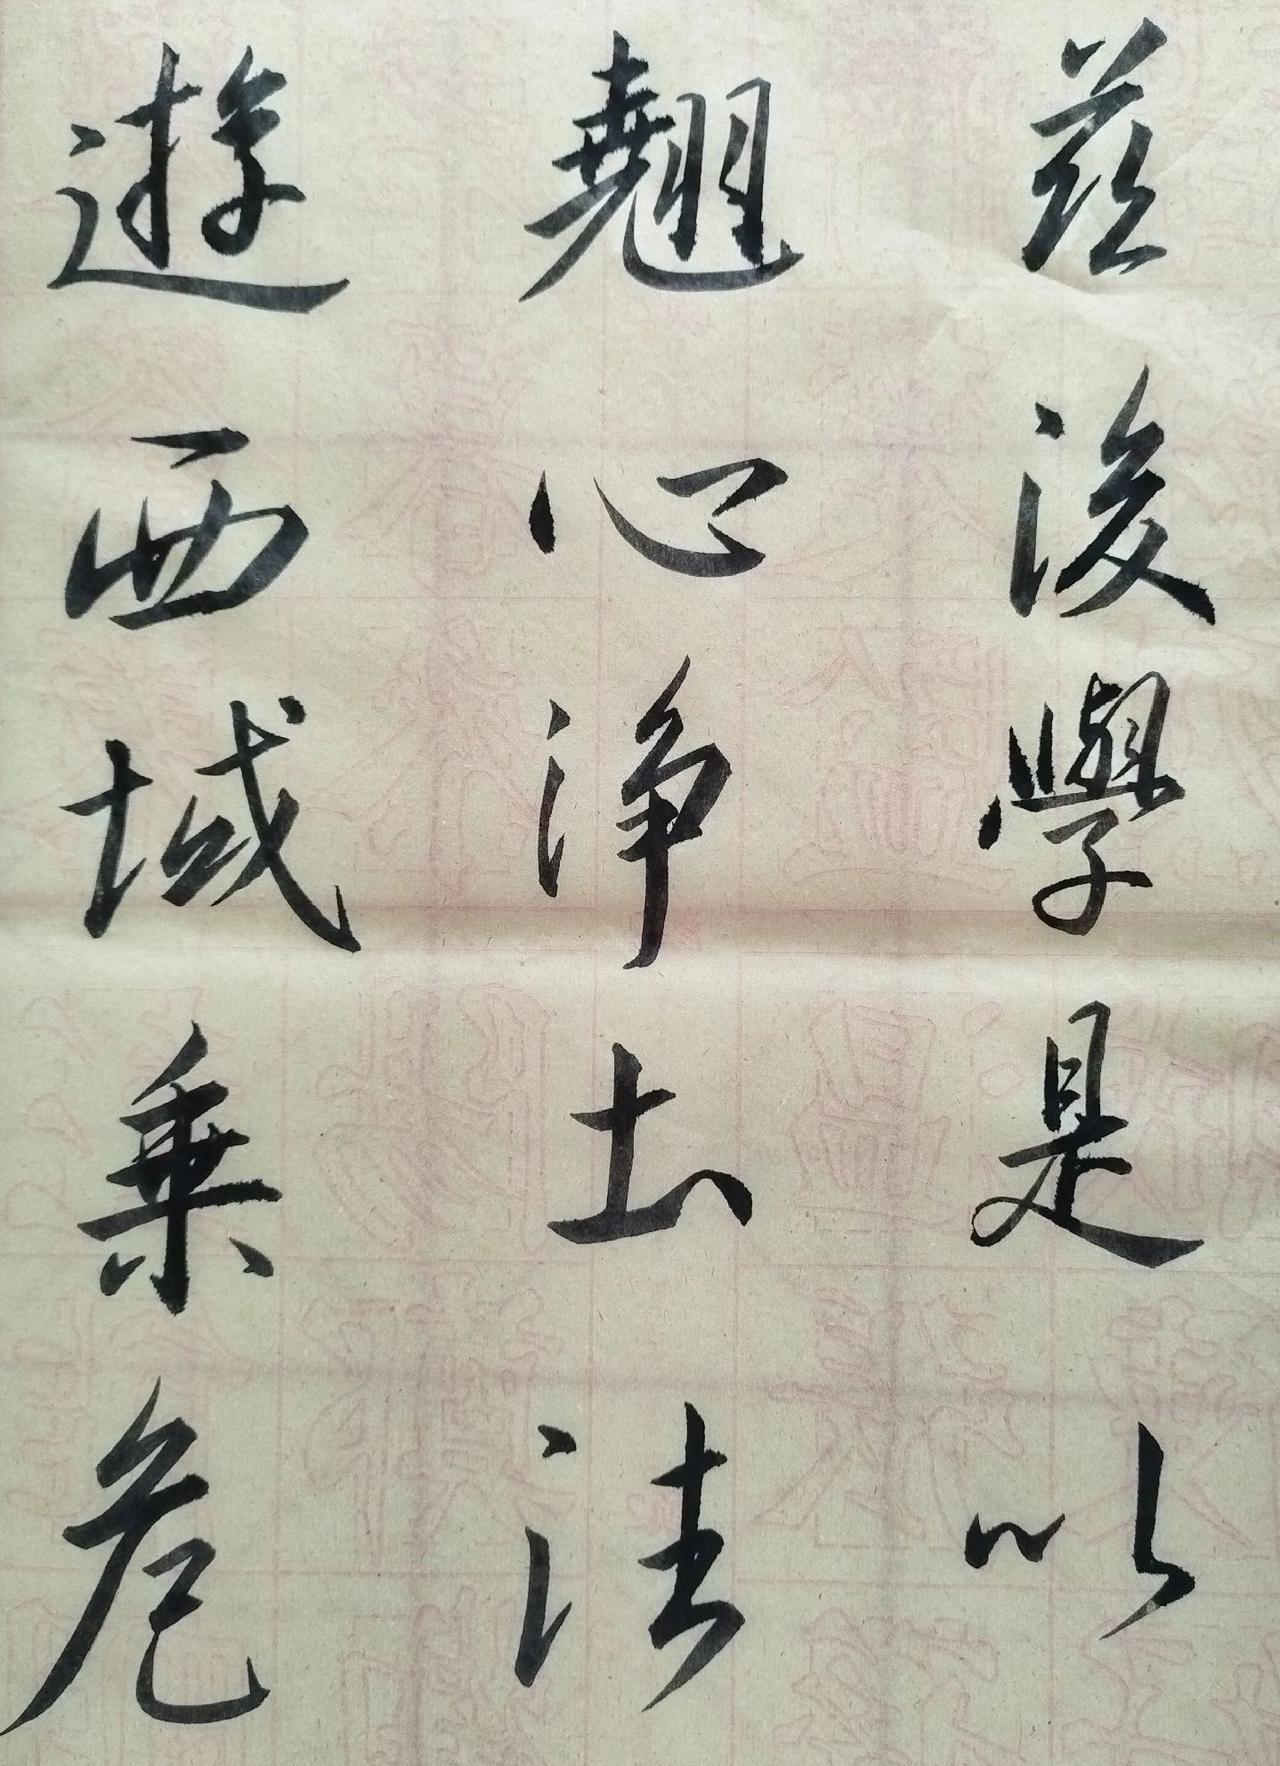 茲後學是以
翹心淨土法
遊西域乗危